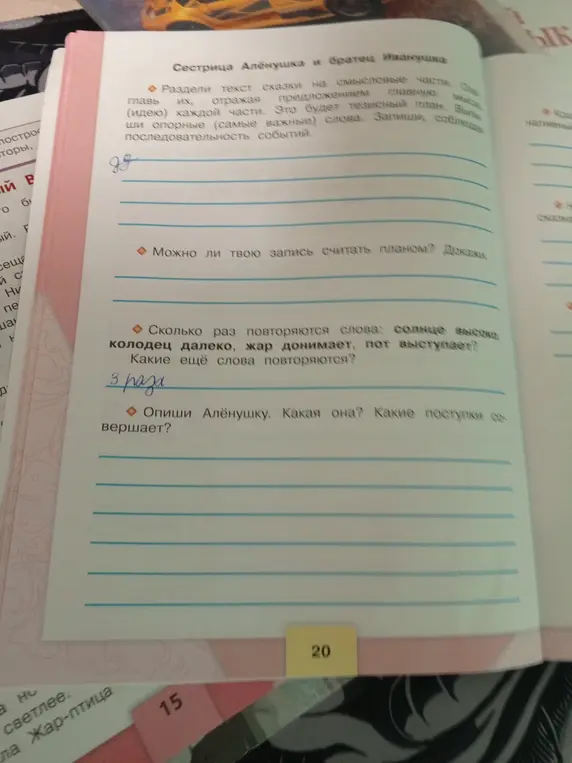 Сестрица Алёнушка и братец Иванушка
Раздели текст сказки на смысловые части.
главь их, отражая предложением главную мысль
(идею) каждой части. Это будет тезисный план. Выпи-
ши опорные (самые важные) слова. Запиши, соблюдая
последовательность событий.
Можно ли твою запись считать планом? Докажи.
Сколько раз повторяются слова: солнце высоко,
колодец далеко, жар донимает, пот выступает?
Какие ещё слова повторяются?
3 раза
Опиши Алёнушку. Какая она? Какие поступки со-
вершает?
20
15
светлее.
Жар-птица